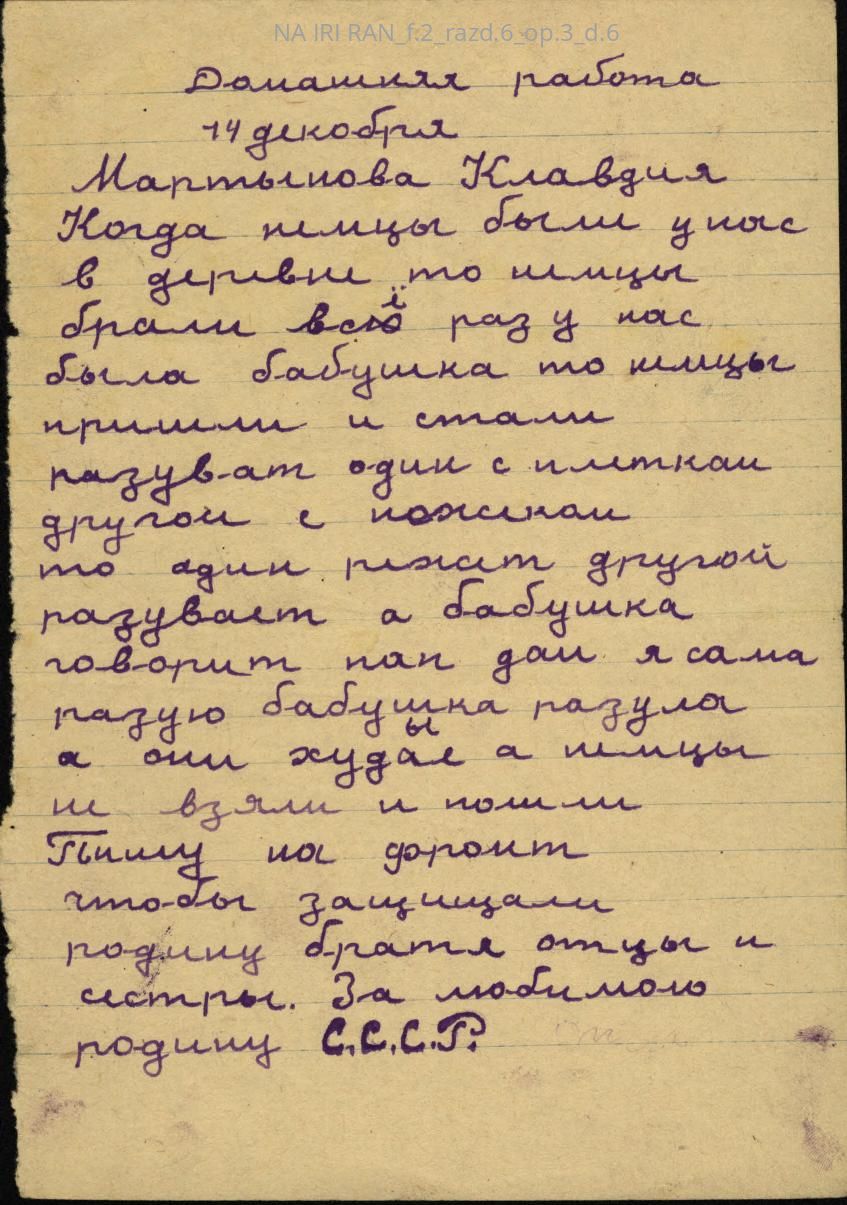 NA IRI RAN_f.2_razd.6_op.3_d.6
Домашняя работа
14 декобря
Мартынова Клавдия
Когда немцы были унас
в деревне то немцы
брали всё раз у нас
была бабушка то немцы
пришли и стали
разуват один с плеткаи
другои с ножикаи
то адин режит другой
разувает а бабушка
говорит пан даи я сама
разую бабушка разула
а они худые а немцы
не взяли и пошли
Пишу на фронт
чтобы защищали
родину братя отцы и
сестры. За любимою
родину С.С.С.Р.